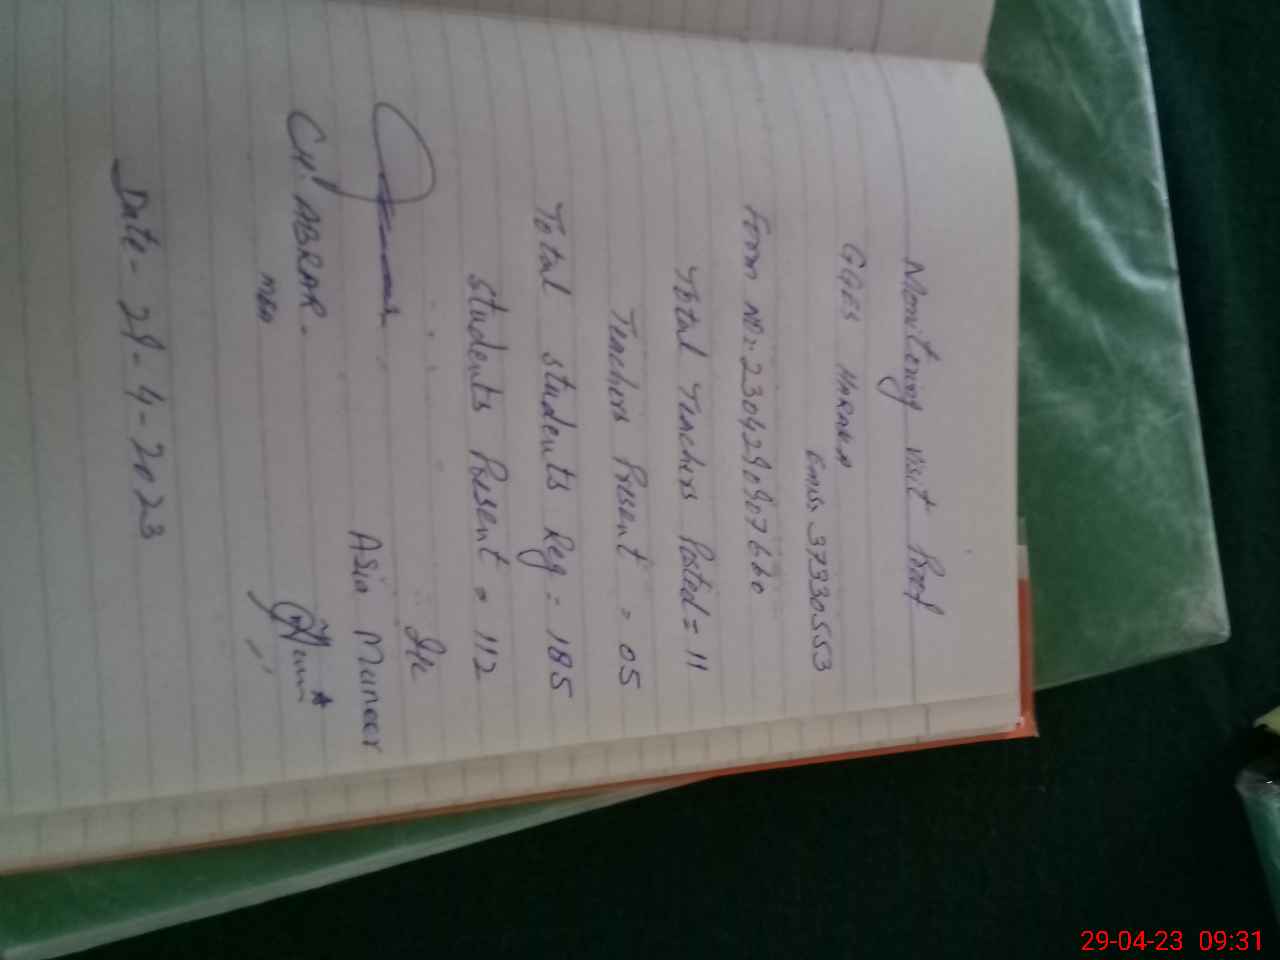 Monitoring visit Proof
GGES HARAKA
Emis 37330553
Form NO: 2304290907660
Total Teachers Posted = 11
Teachers Present = 05
Total students Reg = 185
students Present = 112
CH. ABRAR.
MEA
Asia Muneer
Date - 29-4-2023
29-04-23 09:31